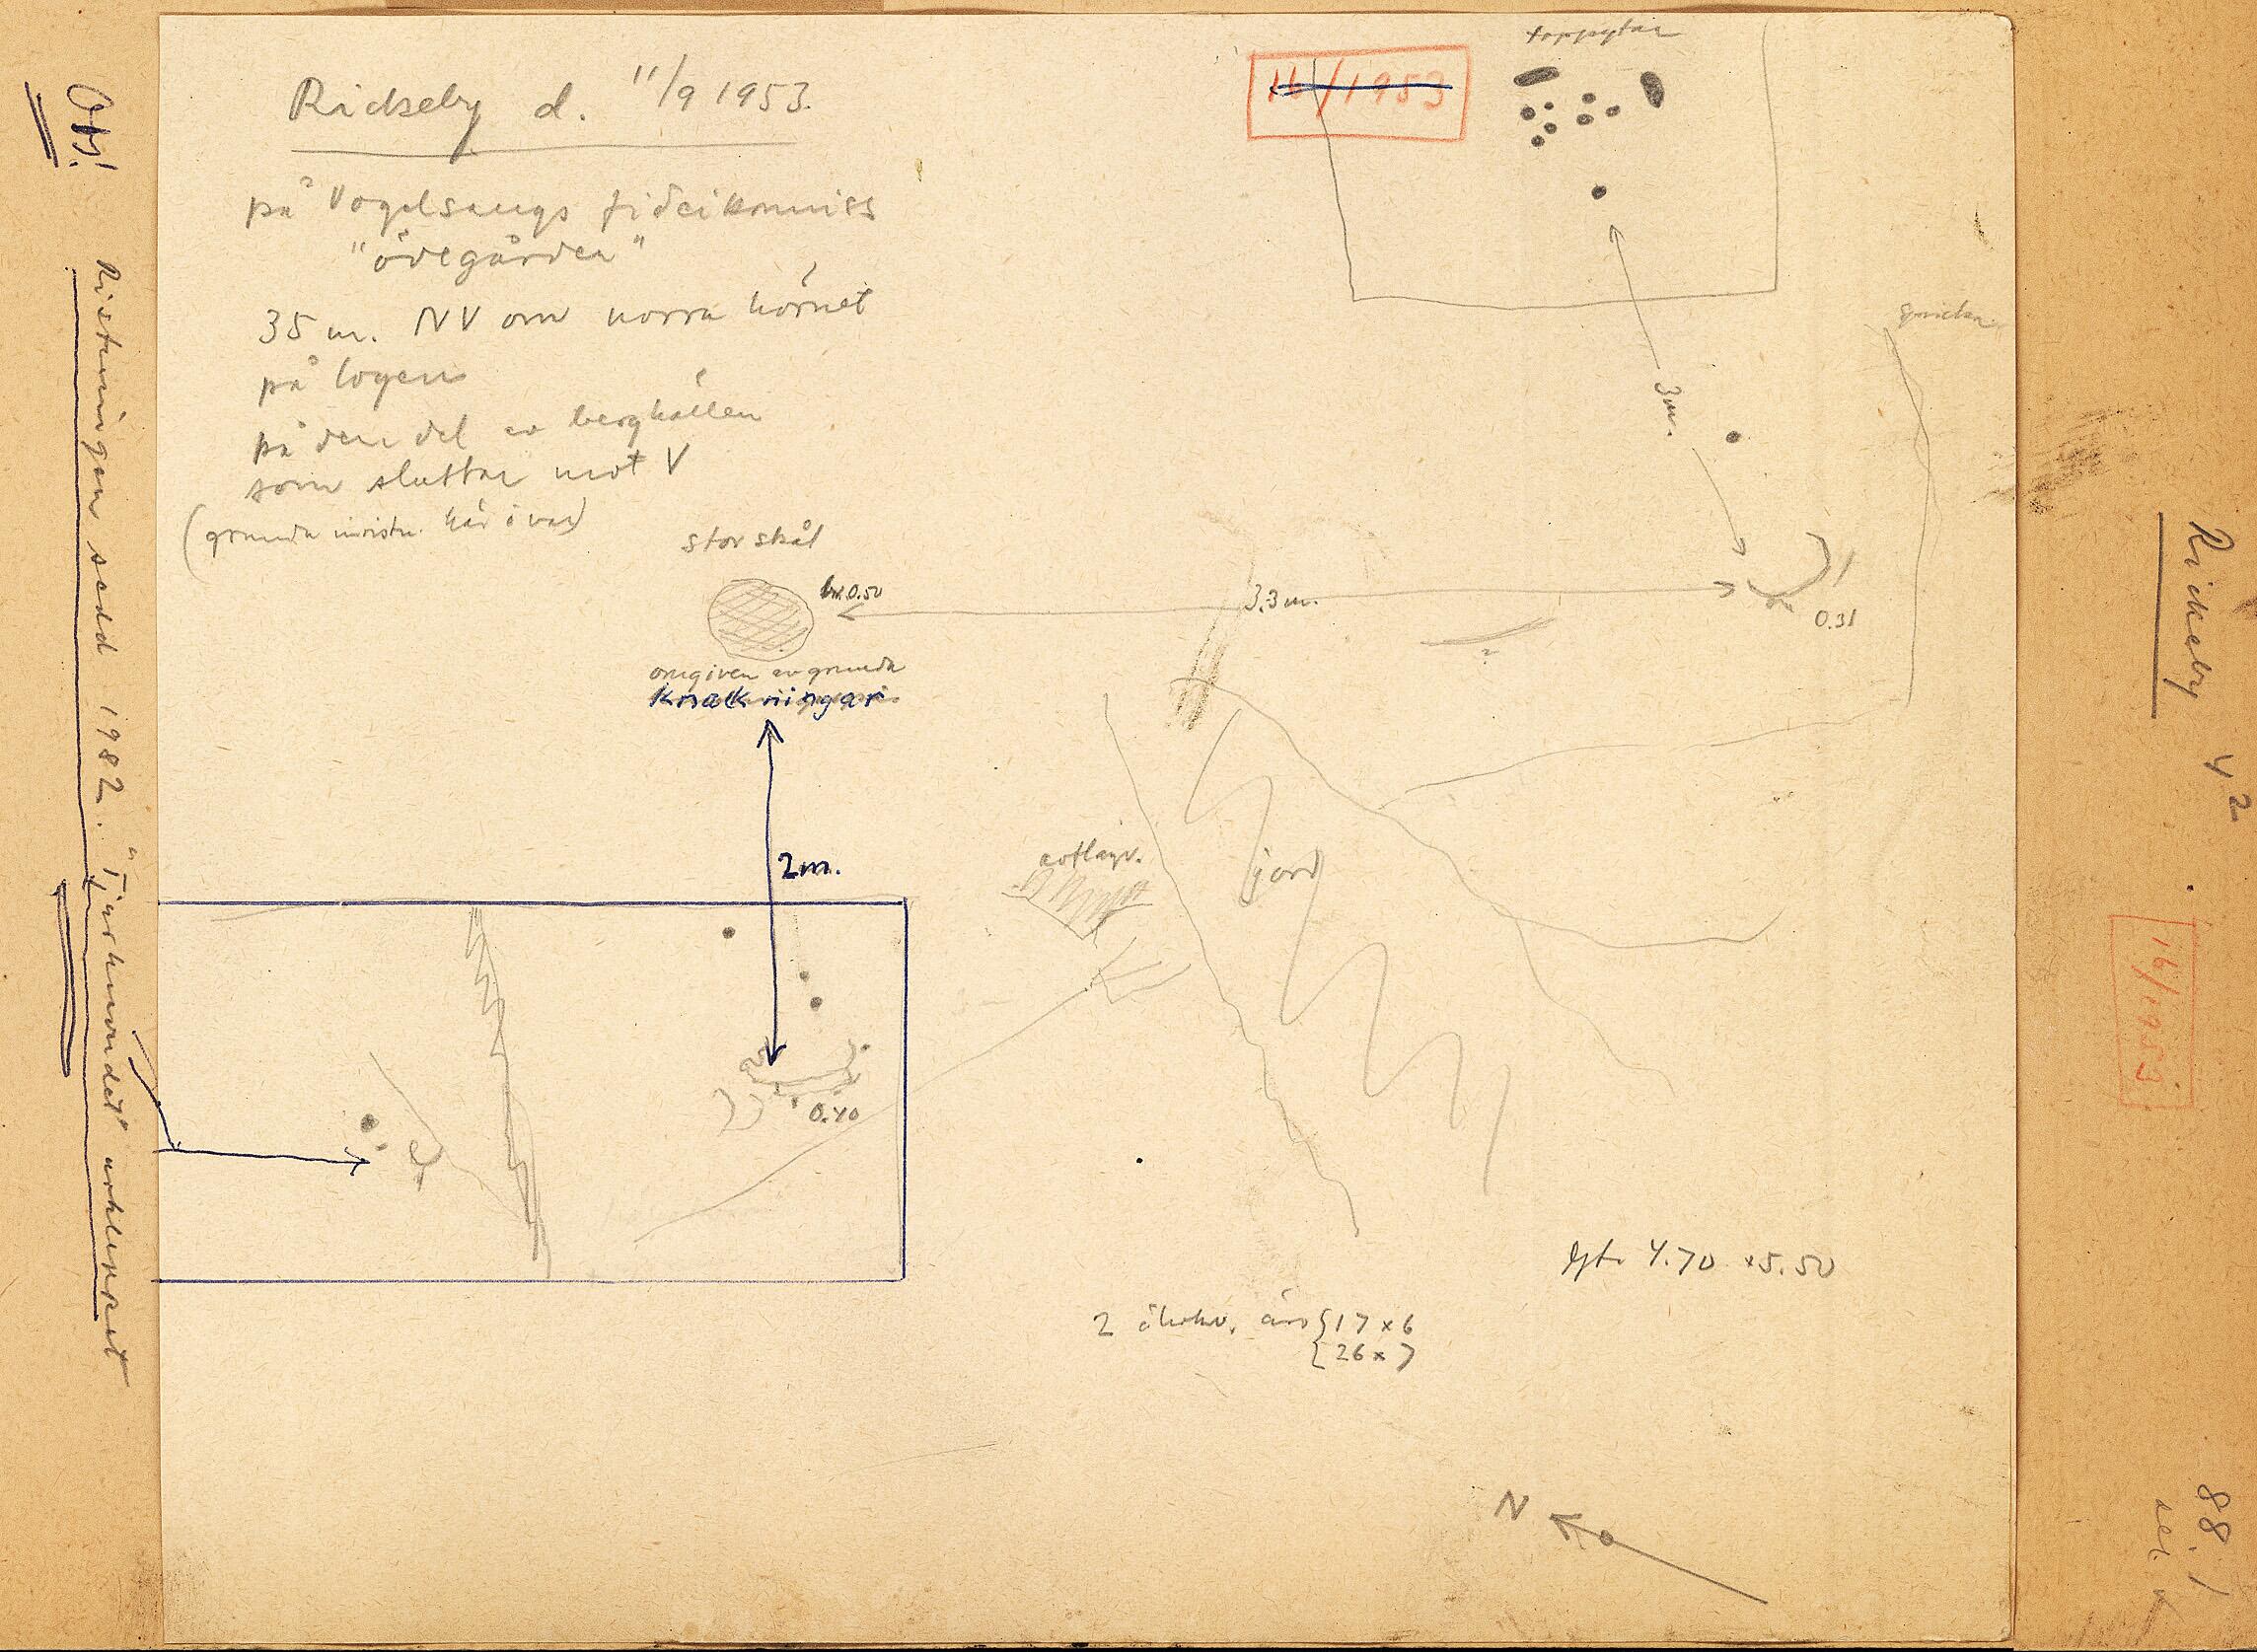 Obs!
Ristningen sedd 1982. "Tjärhuvudet" urhuggnet
Rickeby d. 11/9 1953.
på Vogelsangs fideikommiss
"ödegården"
35 m. NV om norra hörnet
på logen
på den del av berghällen
som sluttar mot V
(grunda inristn. här övan)
16/1953
toppytan
spricka
3 m.
stor skål
br. 0.50
3.3 m.
0.31
?
omgiven av grunda
knackningar
2 m.
avflagn.
jord
0.40
Yt. 4.70 x 5.50
2 älvkv. äro {17 x 6
{26 x 7
N
Rickeby
42
16/1953
88.1